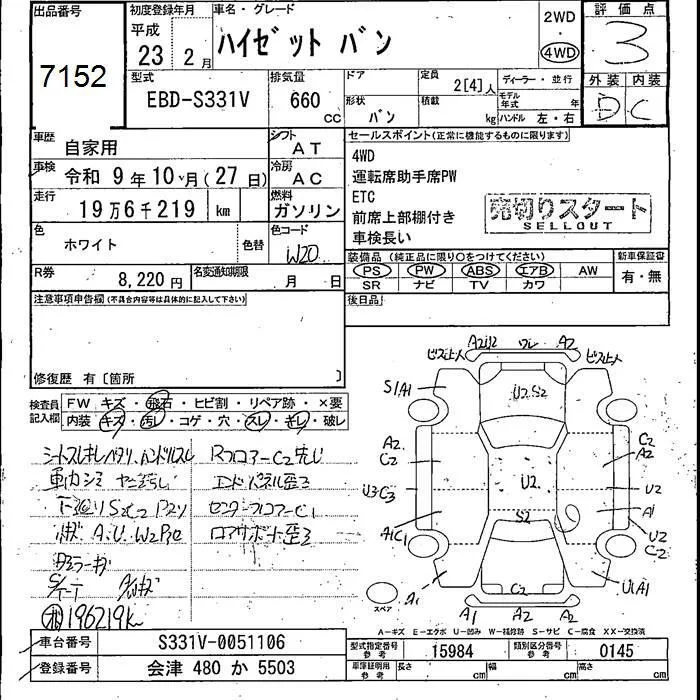 出品番号
7152
初度登録年月
平成
23年 2月
車名・グレード
ハイゼット バン
2WD
4WD
評価点
3
外装 内装
D C
型式
EBD-S331V
排気量
660 CC
ドア
形状
バン
定員
2[4]人
積載
kg
ディーラー・並行
モデル年式 年
ハンドル 左・右
車歴
自家用
シフト
AT
車検
令和 9年 10月(27日)
冷房
AC
走行
19万6千219 km
燃料
ガソリン
色
ホワイト
色替
色コード
W20
R券
8,220円
名変通知期限
月 日
セールスポイント(正常に機能するものに限ります)
4WD
運転席助手席PW
ETC
前席上部棚付き
車検長い
売切りスタート
SELLOUT
装備品 (純正品に限り○をつけてください)
PS PW ABS エアB AW
SR ナビ TV カワ
新車保証書
有・無
後日品
注意事項申告欄(不具合内容等は具体的に記入して下さい)
修復歴 有〔箇所 〕
検査員記入欄
FW キズ・飛石・ヒビ割・リペア跡・×要
内装 キズ・汚レ・コゲ・穴・スレ・キレ・破レ
シートスレキレヘタリ ハンドルスレ
下廻りSC2
A.U.W2
RフロアーC2
エンドパネル歪ミ
センターフロアーC1
196219k
A2U2 ワレ A2
ビス止メ ビス止メ
S1A1
U2S2
A2
C2
C2
A2
U3C3
U2
U2
A1
S2
A1C1
U2
C2
C2
U1A1
A1
A1 A2 A2
スペア
A－キズ E－エクボ U－凹み W－補修跡 S－サビ C－腐食 XX－交換済
車台番号
S331V-0051106
登録番号
会津 480 か 5503
型式指定番号
参考
15984
類別区分番号
参考
0145
車庫証明用
参考
長さ cm
幅 cm
高さ cm